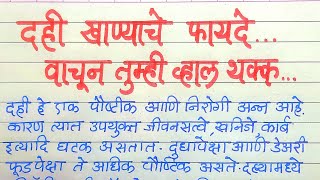 दही खाण्याचे फायदे...
वाचून तुम्ही व्हाल थक्क...
दही हे एक पौष्टीक आणि निरोगी अन्न आहे.
कारण त्यात उपयुक्त जीवनसत्वे, खनिजे, कार्ब
इत्यादि घटक असतात. दुधापेक्षा आणि डेअरी
फूडपेक्षा ते अधिक पौष्टिक असते. दह्यामध्ये